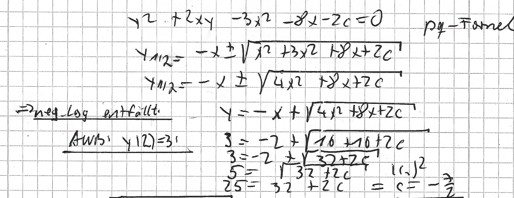 y² + 2xy - 3x² - 8x - 2c = 0   pq-Formel
y₁/₂ = -x ± √(x² + 3x² + 8x + 2c)
y₁/₂ = -x ± √(4x² + 8x + 2c)
⇒ neg. Lsg entfällt. y = -x + √(4x² + 8x + 2c)
AWB: y(2)=3: 3 = -2 + √(16 + 16 + 2c)
3 = -2 + √(32 + 2c)
5 = √(32 + 2c) |(..)²
25 = 32 + 2c = c = -7/2